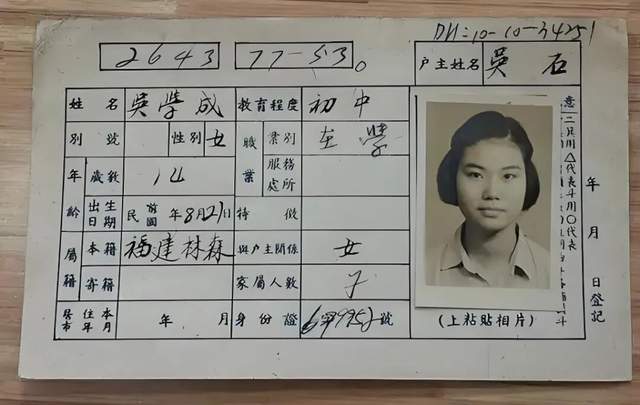 DH:10-10-34251
2643 77-53。 户主姓名 吳石
姓名 吳學成 教育程度 初中
別號 性別 女 職業 業別 在學
年齡 歲數 14 服務處所
出生日期 民前國 年8月21日 特徵
屬籍 本籍 福建林森 與戶主關係 女
寄籍 家屬人數 子
居住本市年月 年 月 身份證 號
(上粘貼相片)
意
二只川△代表斗川〇代表
年 月 日登記